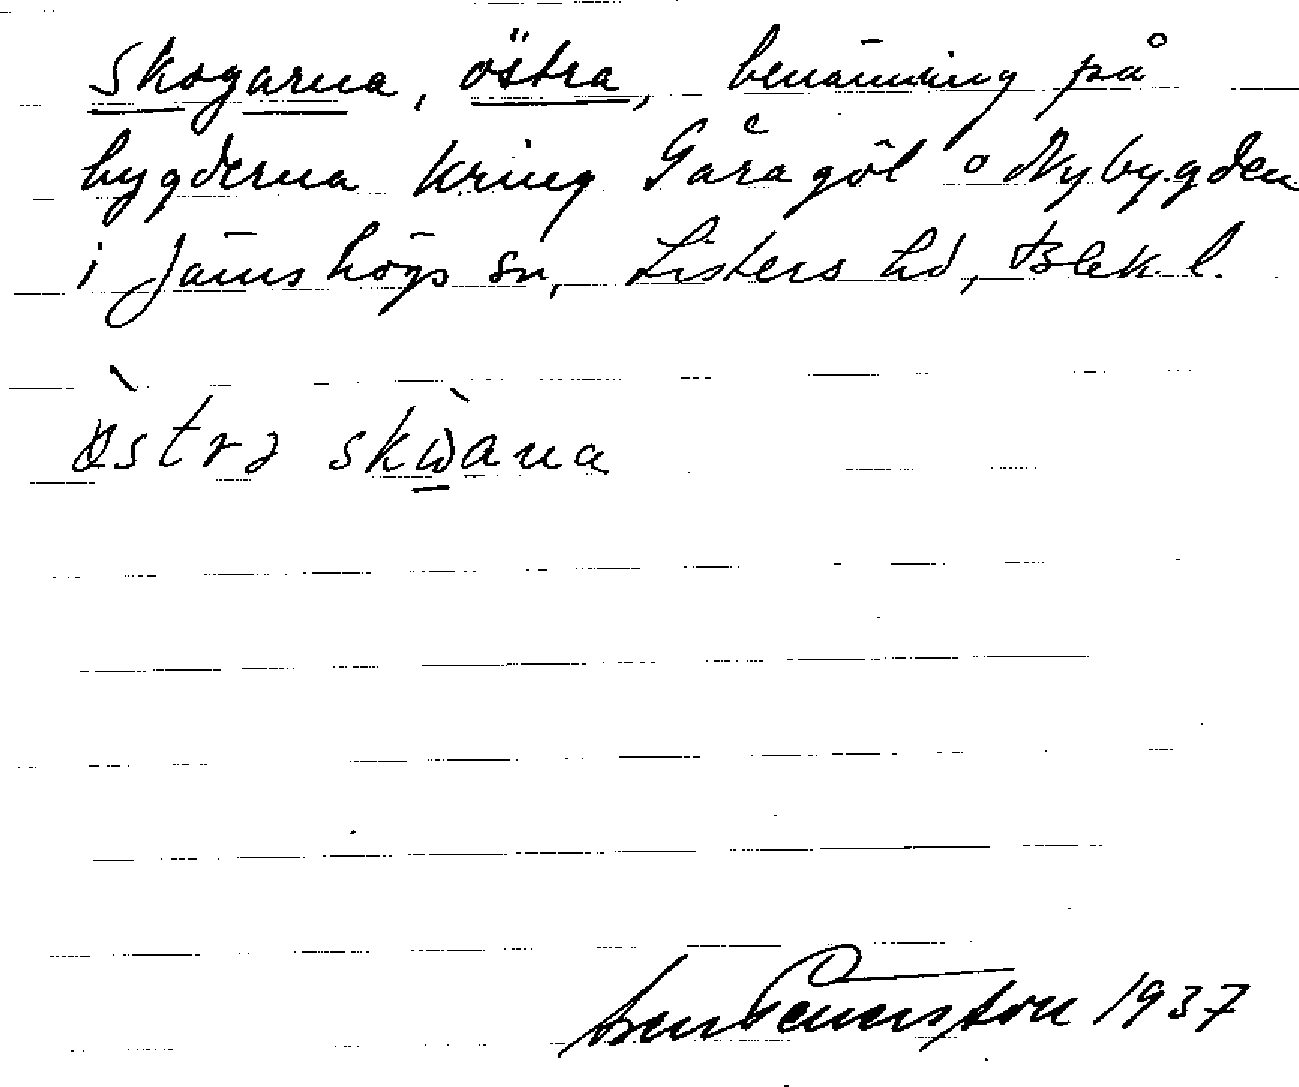 Skogarna, östra, benämning på
bygderna kring Gåragöl o Nybygden
i Jämshögs sn, Listers hd, Blek. l.
östra skωana
1937